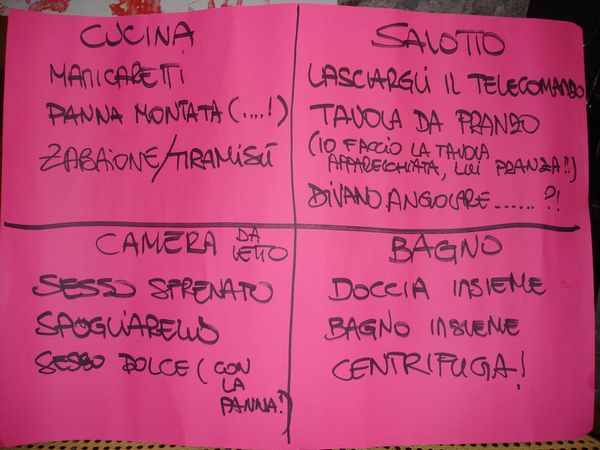 CUCINA
MANICARETTI
PANNA MONTATA (....!)
ZABAIONE/TIRAMISÙ
SALOTTO
LASCIARGLI IL TELECOMANDO
TAVOLA DA PRANZO
(IO FACCIO LA TAVOLA
APPARECCHIATA, LUI PRANZA!!)
DIVANO ANGOLARE......?!
CAMERA DA
LETTO
SESSO SFRENATO
SPOGLIARELLO
SESSO DOLCE (CON
LA
PANNA?)
BAGNO
DOCCIA INSIEME
BAGNO INSIEME
CENTRIFUGA!